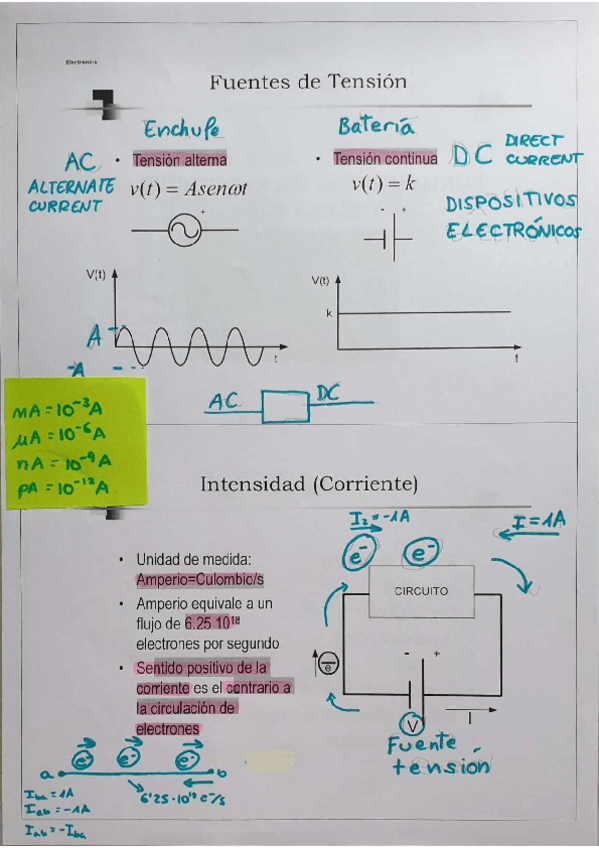 Electronica
Fuentes de Tensión
Enchufe
Batería
AC
ALTERNATE
CURRENT
• Tensión alterna
v(t) = Asenωt
+
• Tensión continua
v(t) = k
- +
DC
DIRECT
CURRENT
DISPOSITIVOS
ELECTRÓNICOS
V(t)
A
-A
t
V(t)
k
t
AC
DC
mA = 10⁻³A
μA = 10⁻⁶A
nA = 10⁻⁹A
pA = 10⁻¹²A
Intensidad (Corriente)
• Unidad de medida:
Amperio=Culombio/s
• Amperio equivale a un
flujo de 6.25 10¹⁸
electrones por segundo
• Sentido positivo de la
corriente es el contrario a
la circulación de
electrones
I₂ = -1A
I = 1A
e⁻
e⁻
CIRCUITO
- +
e
I
V
Fuente
tensión
e⁻
e⁻
e⁻
a
b
6'25·10¹⁸ e⁻/s
I_ba = 1A
I_ab = -1A
I_ab = -I_ba